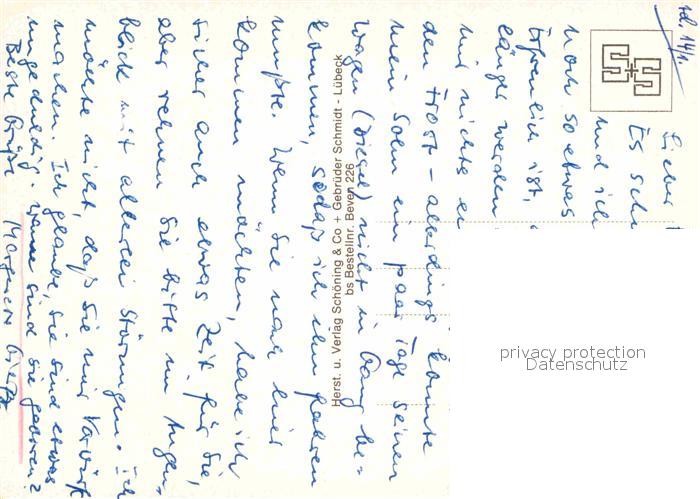 rd. 14/1.
Lieber
Es sch
und ich
noch so etwas
Erfreulich ist,
länger werden
mir nichts
den Frost - allerdings konnte
mein Sohn ein paar Tage seinen
Wagen (Diesel) nicht in Gang be-
kommen, sodaß ich ihn fahren
mußte. Wenn Sie mal hier
kommen möchten, habe ich
sicher auch etwas Zeit für Sie,
aber rechnen Sie bitte im Augen-
blick mit allerlei Störungen. Ich
möchte nicht, daß Sie mir Vorwürfe
machen. Ich glaube, Sie sind etwas
ungeduldig. Wann sind Sie geboren?
Beste Grüße
Herst. u. Verlag Schöning & Co + Gebrüder Schmidt - Lübeck
bs Bestellnr. Beven 226
privacy protection
Datenschutz